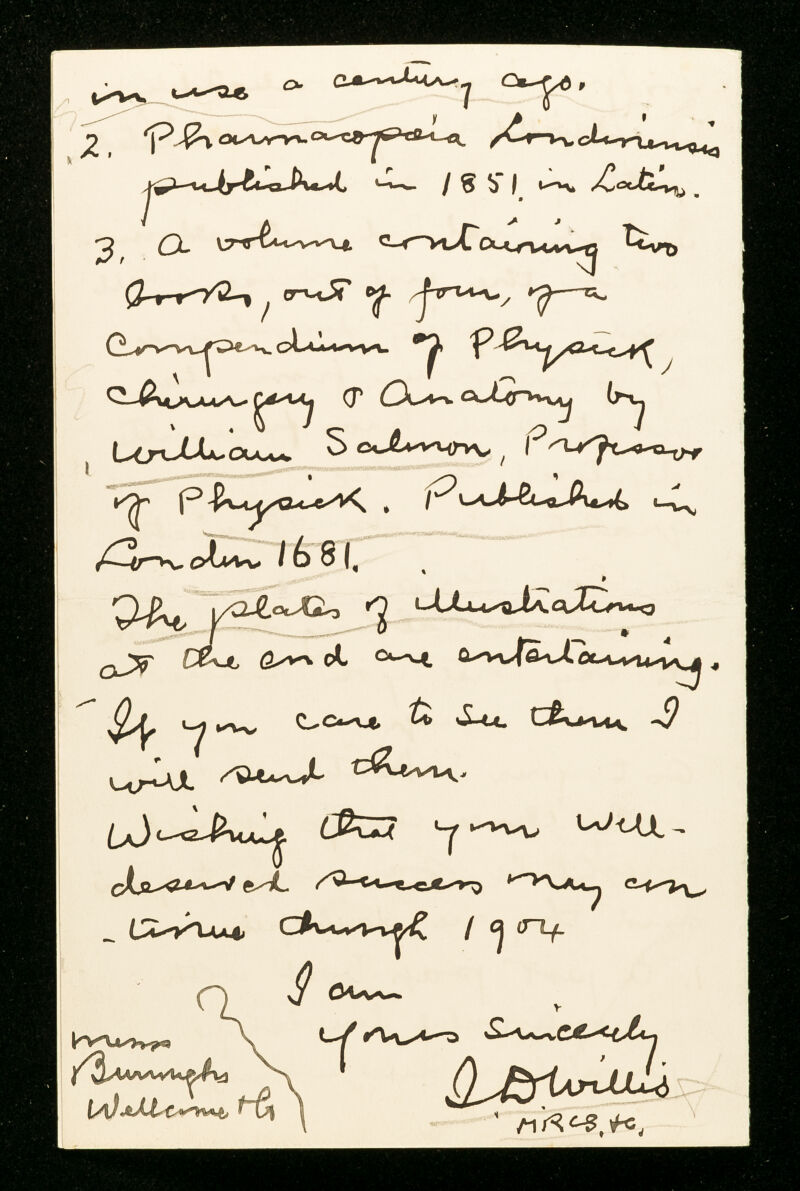 in use a century ago.
2. Pharmacopœia Londiniensis
published in 1851. in Latin.
3. A volume containing two
books, out of four, of a
Compendium of Physick,
Chirurgery & Anatomy by
William Salmon, Professor
of Physick. Published in
London 1681.
The plates of illustrations
at the end are entertaining.
If you care to see them I
will send them.
Wishing that your well-
deserved success may con
-tinue through 1904
I am
Yours Sincerely
J D Willis
MRCS, &c.
Messrs
Burroughs
Wellcome & Co